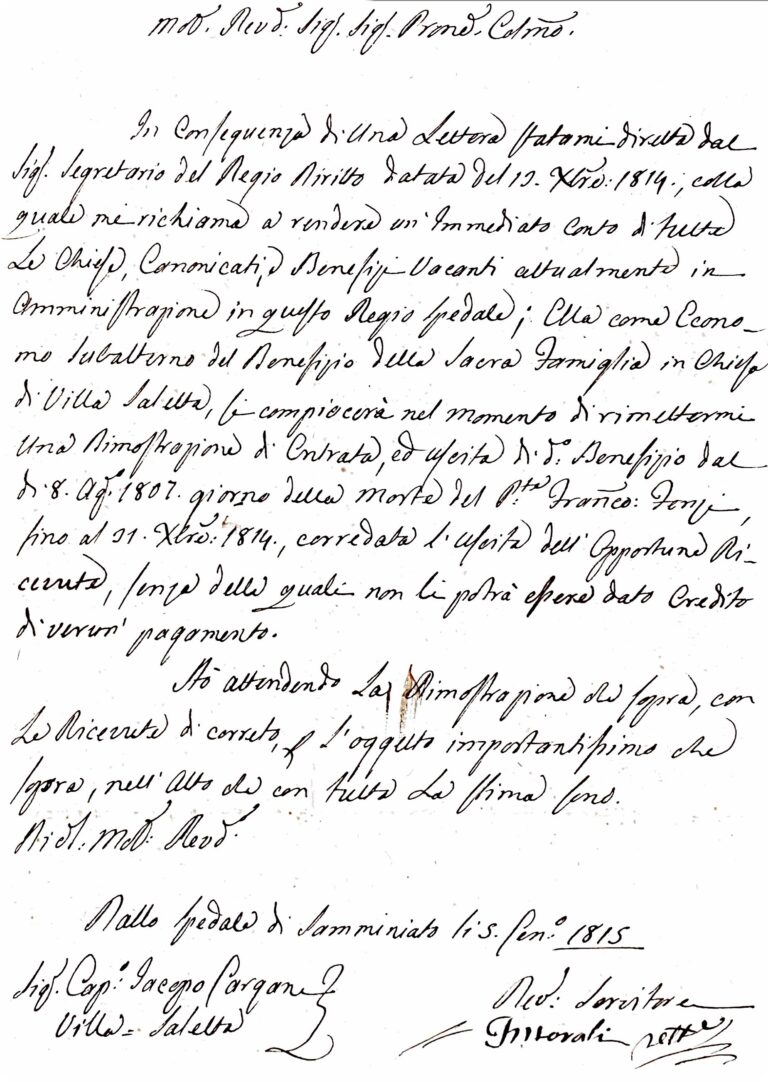 Molt. Revd: Sigr. Sigr. Prone. Colmo.
In Conseguenza di Una Lettera statami diretta dal
Sigr. Segretario del Regio Diritto datata del 12. Xbre: 1814., colla
quale mi richiama a rendere un' Immediato Conto di tutte
Le Chiese, Canonicati, e Benefizj Vacanti attualmente in
Amministrazione in questo Regio Spedale; Ella come Econo-
mo Subalterno del Benefizio della Sacra Famiglia in Chiesa
di Villa Saletta, si compiacerà nel momento di rimettermi
Una Dimostrazione di Entrata, ed uscita di do: Benefizio dal
di 8. Ago. 1807. giorno della Morte del Franco:
fino al 31. Xbre: 1814., corredata l'uscita dell'Opportune Ri-
cevute, senza delle quali non li potrà essere dato Credito
di verun' pagamento.
Stò attendendo La Dimostrazione che sopra, con
Le Ricevute di correto, p l'oggetto importantissimo che
sopra, nell'Atto che con tutta La stima sono.
Di Molt: Revd.
Dallo Spedale di Samminiato li 5. Geno. 1815
Sigr. Capo: Jacopo
Villa = Saletta
Dev: Servitore
Morali